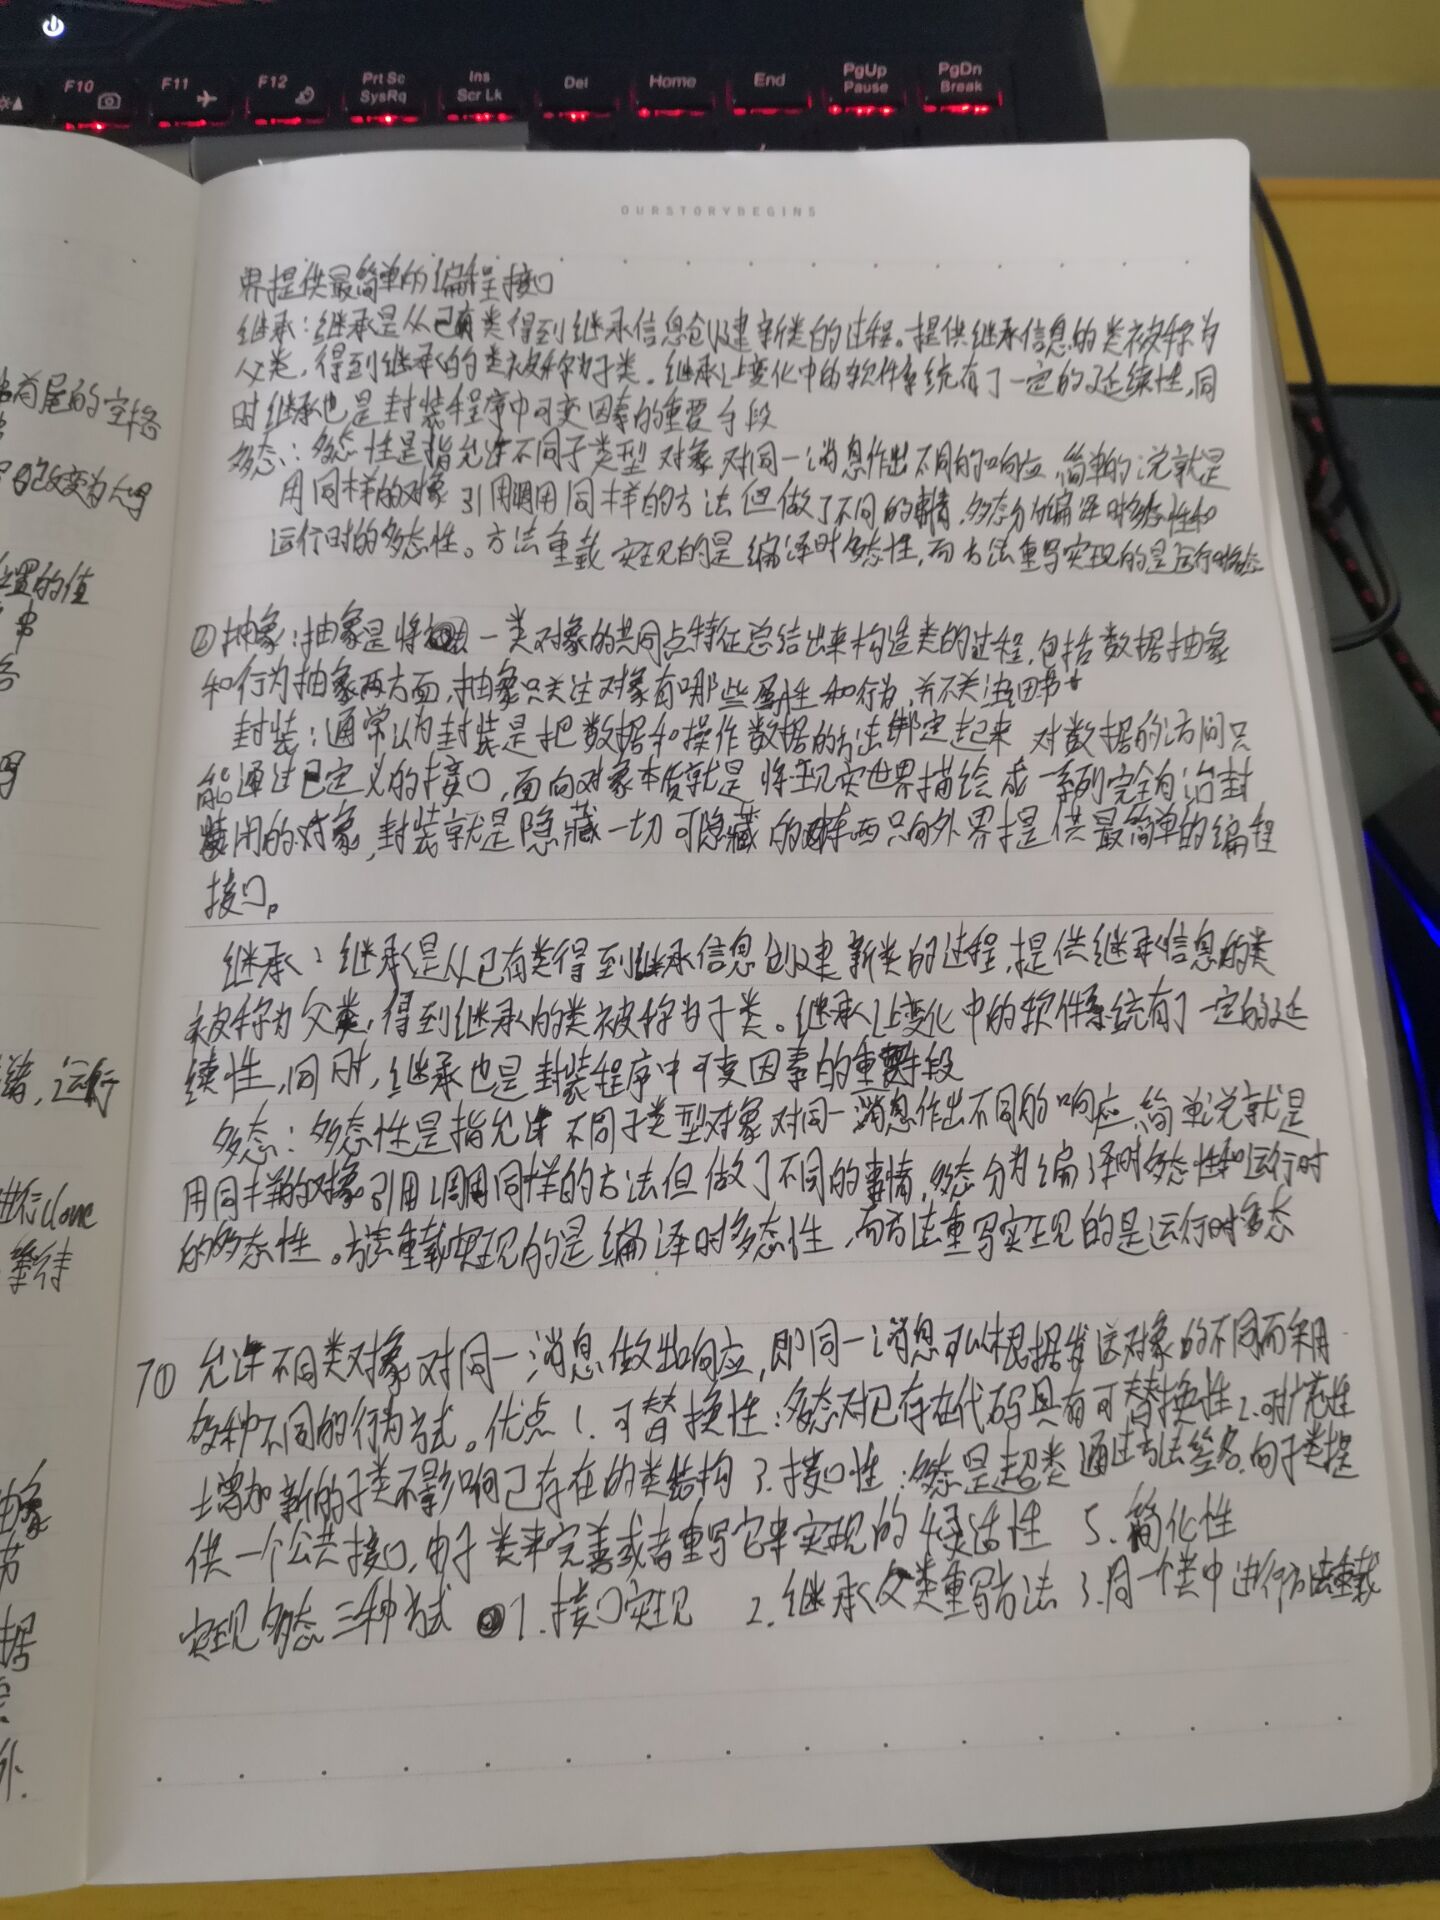 F10
F11
F12
Prt Sc
SysRq
Ins
Scr Lk
Del
Home
End
PgUp
Pause
PgDn
Break
OURSTORYBEGINS
界提供最简单的编程接口
继承:继承是从已有类得到继承信息创建新类的过程。提供继承信息的类被称为
父类,得到继承的类被称为子类。继承让变化中的软件系统有了一定的延续性,同
时继承也是封装程序中可变因素的重要手段
多态:多态性是指允许不同子类型对象对同一消息作出不同的响应 简单的说就是
用同样的对象引用调用同样的方法但做了不同的事情.多态分为编译时多态性和
运行时的多态性。方法重载实现的是编译时多态性,而方法重写实现的是运行时多态
②抽象:抽象是将一类对象的共同点特征总结出来构造类的过程,包括数据抽象
和行为抽象两方面,抽象只关注对象有哪些属性和行为,并不关注细节
封装:通常认为封装是把数据和操作数据的方法绑定起来 对数据的访问只
能通过已定义的接口,面向对象本质就是将现实世界描绘成一系列完全自治封
闭的对象,封装就是隐藏一切可隐藏的东西只向外界提供最简单的编程
接口。
继承:继承是从已有类得到继承信息创建新类的过程,提供继承信息的类
被称为父类,得到继承的类被称为子类。继承让变化中的软件系统有了一定的延
续性,同时,继承也是封装程序中可变因素的重要手段
多态:多态性是指允许不同子类型对象对同一消息作出不同的响应,简单说就是
用同样的对象引用调用同样的方法但做了不同的事情,多态分为编译时多态性和运行时
的多态性。方法重载实现的是编译时多态性,而方法重写实现的是运行时多态
7① 允许不同类对象对同一消息做出响应,即同一消息可以根据发送对象的不同而采用
多种不同的行为方式。优点 1.可替换性:多态对已存在代码具有可替换性 2.可扩充性
增加新的子类不影响已存在的类结构 3.接口性:多态是超类通过方法签名,向子类提
供一个公共接口,由子类来完善或者重写它来实现的 4灵活性 5.简化性
实现多态三种方式 1.接口实现 2.继承父类重写方法 3.同一个类中进行方法重载
首尾的空格
改变为大写
位置的值
串
绪,运行
进行clone
等待
抽象